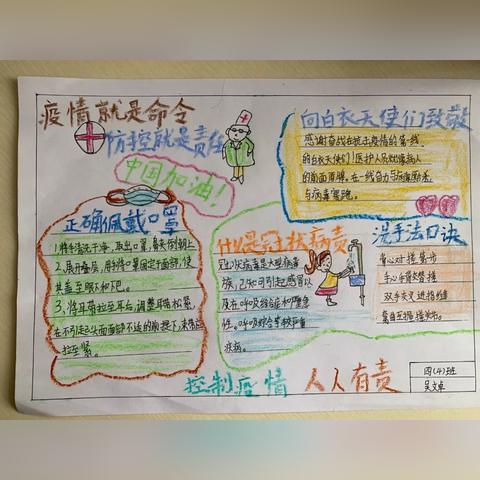 疫情就是命令
防控就是责任
中国加油!
向白衣天使们致敬
感谢奋战在抗击疫情的第一线
的白衣天使们!医护人员就像病人
的前面屏障,在一线奋力与病魔
与病毒赛跑。
正确佩戴口罩
1、将手清洗干净,取出口罩,鼻夹侧朝上
2、展开叠层,用手将口罩固定于面部,使
其盖至眼和下巴。
3、将耳带拉至耳后,调整耳带松紧,
在不引起头面部不适的前提下,
拉至紧。
什么是冠状病毒
冠状病毒是大型病毒
族,已知可引起感冒以
及在呼吸综合和
性。呼吸综合等较严重
疾病。
洗手法口诀
掌心对搓
手心手背交替搓
双手交叉
掌自互握
控制疫情 人人有责
四(4)班
吴文卓